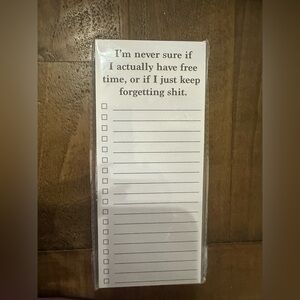 I'm never sure if
I actually have free
time, or if I just keep
forgetting shit.